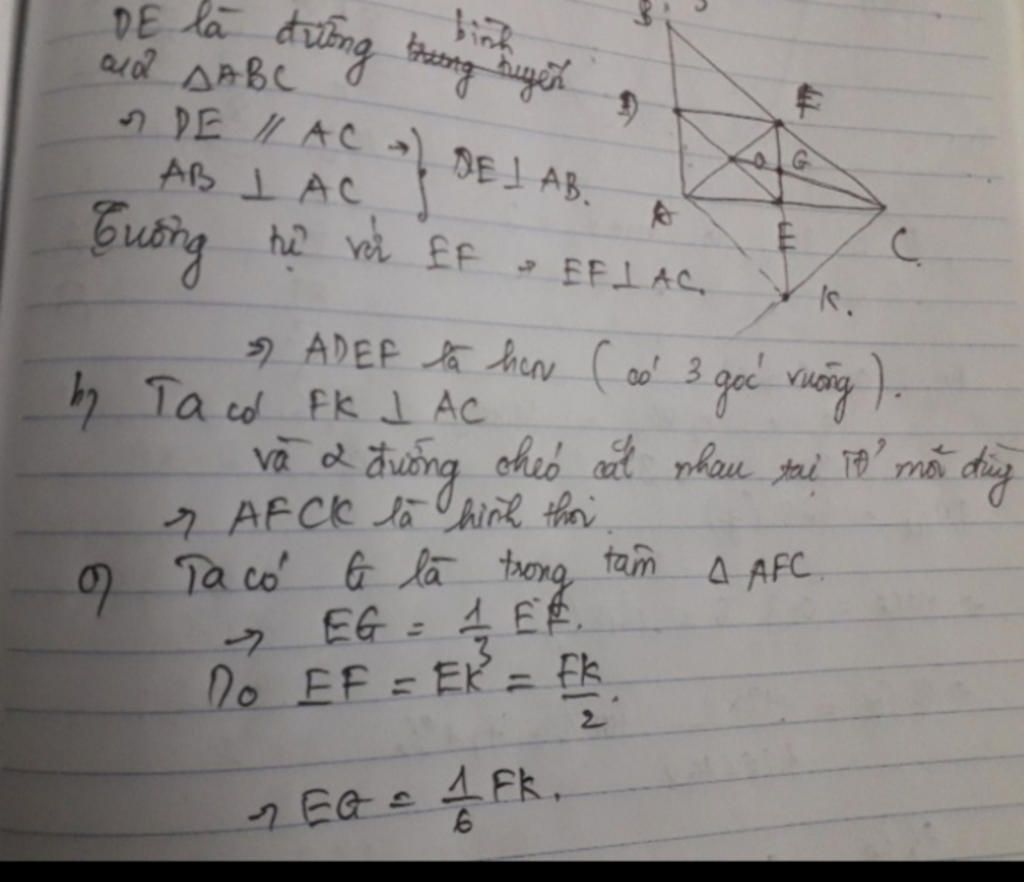 DE là đường trung tuyến bình
của ΔABC
⇒ DE // AC → } DE ⊥ AB.
AB ⊥ AC
Tương tự với EF → EF ⊥ AC.
⇒ ADEF là hcn (có 3 góc vuông).
b) Ta có FK ⊥ AC
và 2 đường chéo cắt nhau tại mỗi
→ AFCK là hình thoi.
c) Ta có G là trong tâm Δ AFC.
→ EG = 1/3 EF.
Do EF = EK = FK/2.
→ EG = 1/6 FK.
B
D
F
O
G
A
E
C.
K.